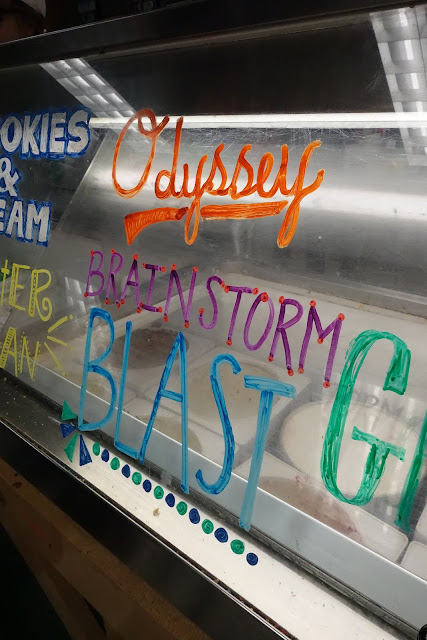 OOKIES
&
EAM
Odyssey
BRAINSTORM
BLAST